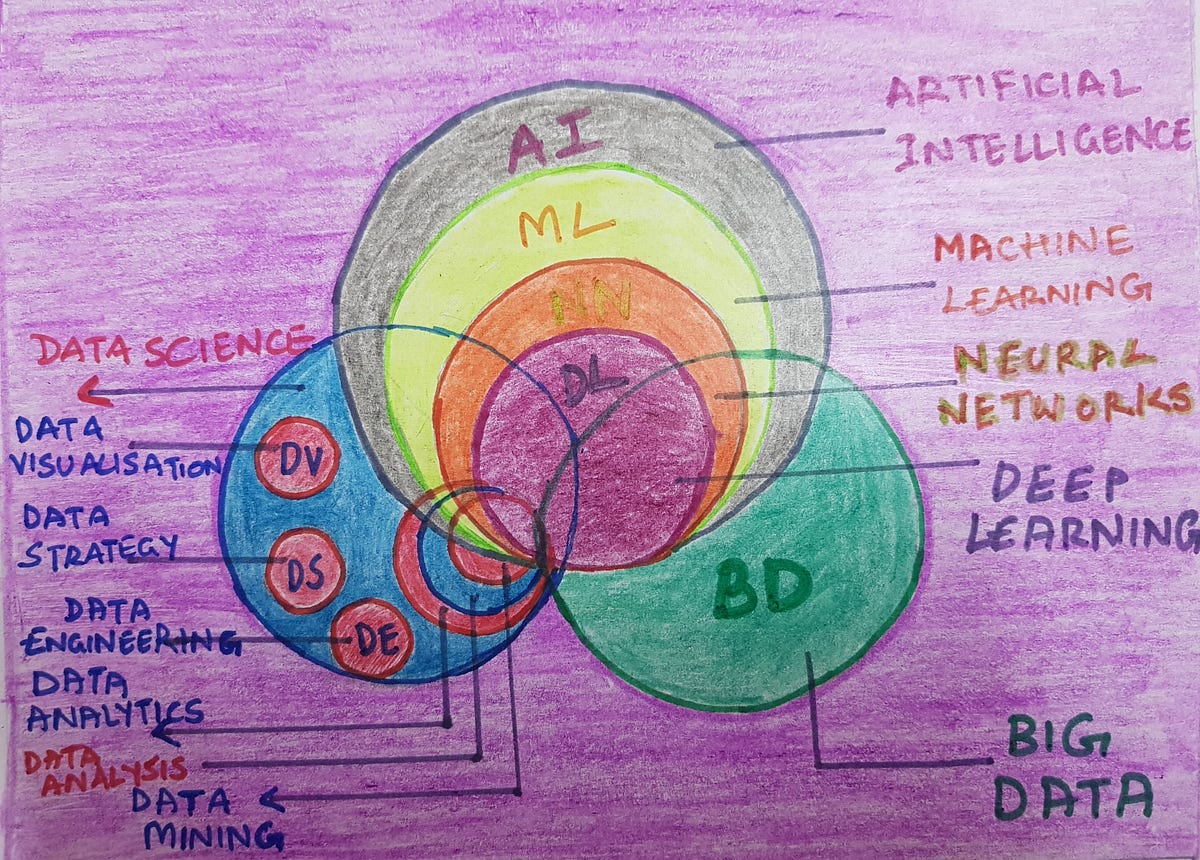 AI
ML
NN
DL
BD
DV
DS
DE
ARTIFICIAL
INTELLIGENCE
MACHINE
LEARNING
NEURAL
NETWORKS
DEEP
LEARNING
BIG
DATA
DATA SCIENCE
DATA
VISUALISATION
DATA
STRATEGY
DATA
ENGINEERING
DATA
ANALYTICS
DATA
ANALYSIS
DATA
MINING